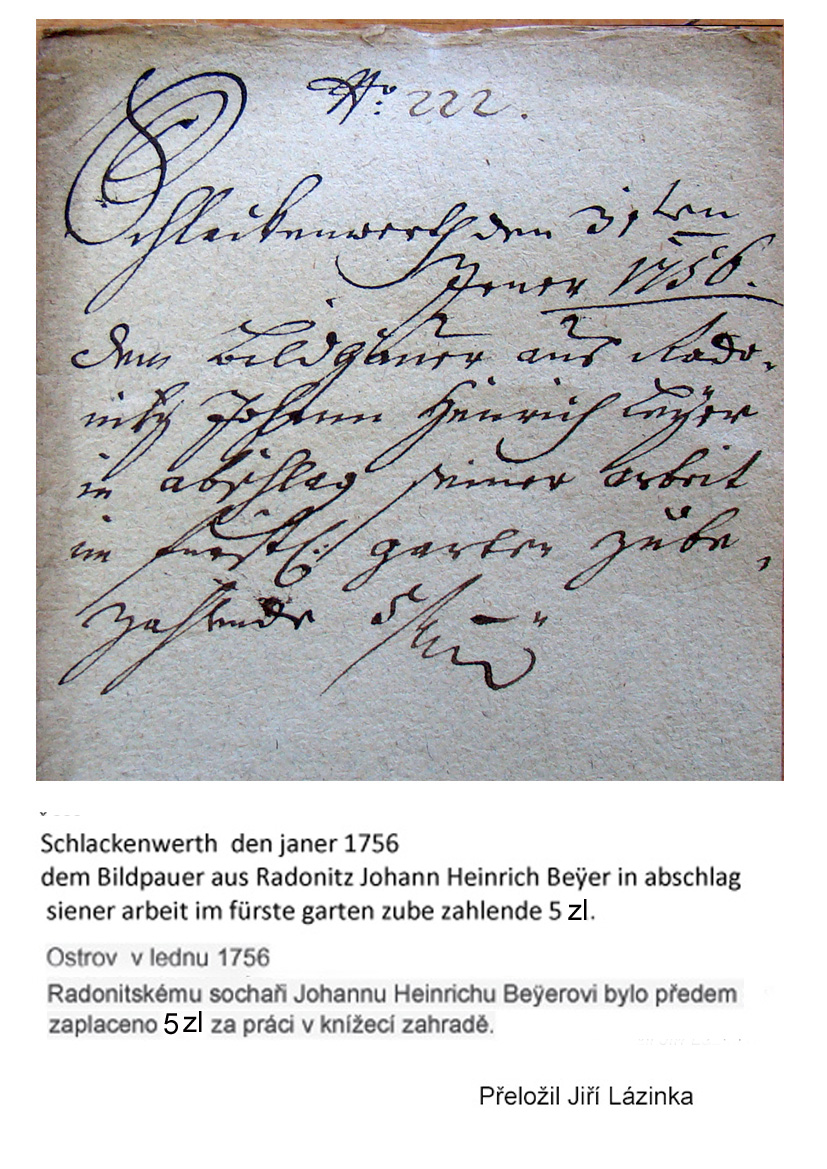 No: 222.
Schlackenwerth den 31ten
Jener 1756.
dem bildhauer aus Rado-
nitz Johann Heinrich beÿer
in abschlag seiner arbeit
im fürstl: garten zube-
zahlende 5
Schlackenwerth den janer 1756
dem Bildpauer aus Radonitz Johann Heinrich Beÿer in abschlag
siener arbeit im fürste garten zube zahlende 5 zl.
Ostrov v lednu 1756
Radonitskému sochaři Johannu Heinrichu Beÿerovi bylo předem
zaplaceno 5 zl za práci v knížecí zahradě.
Přeložil Jiří Lázinka